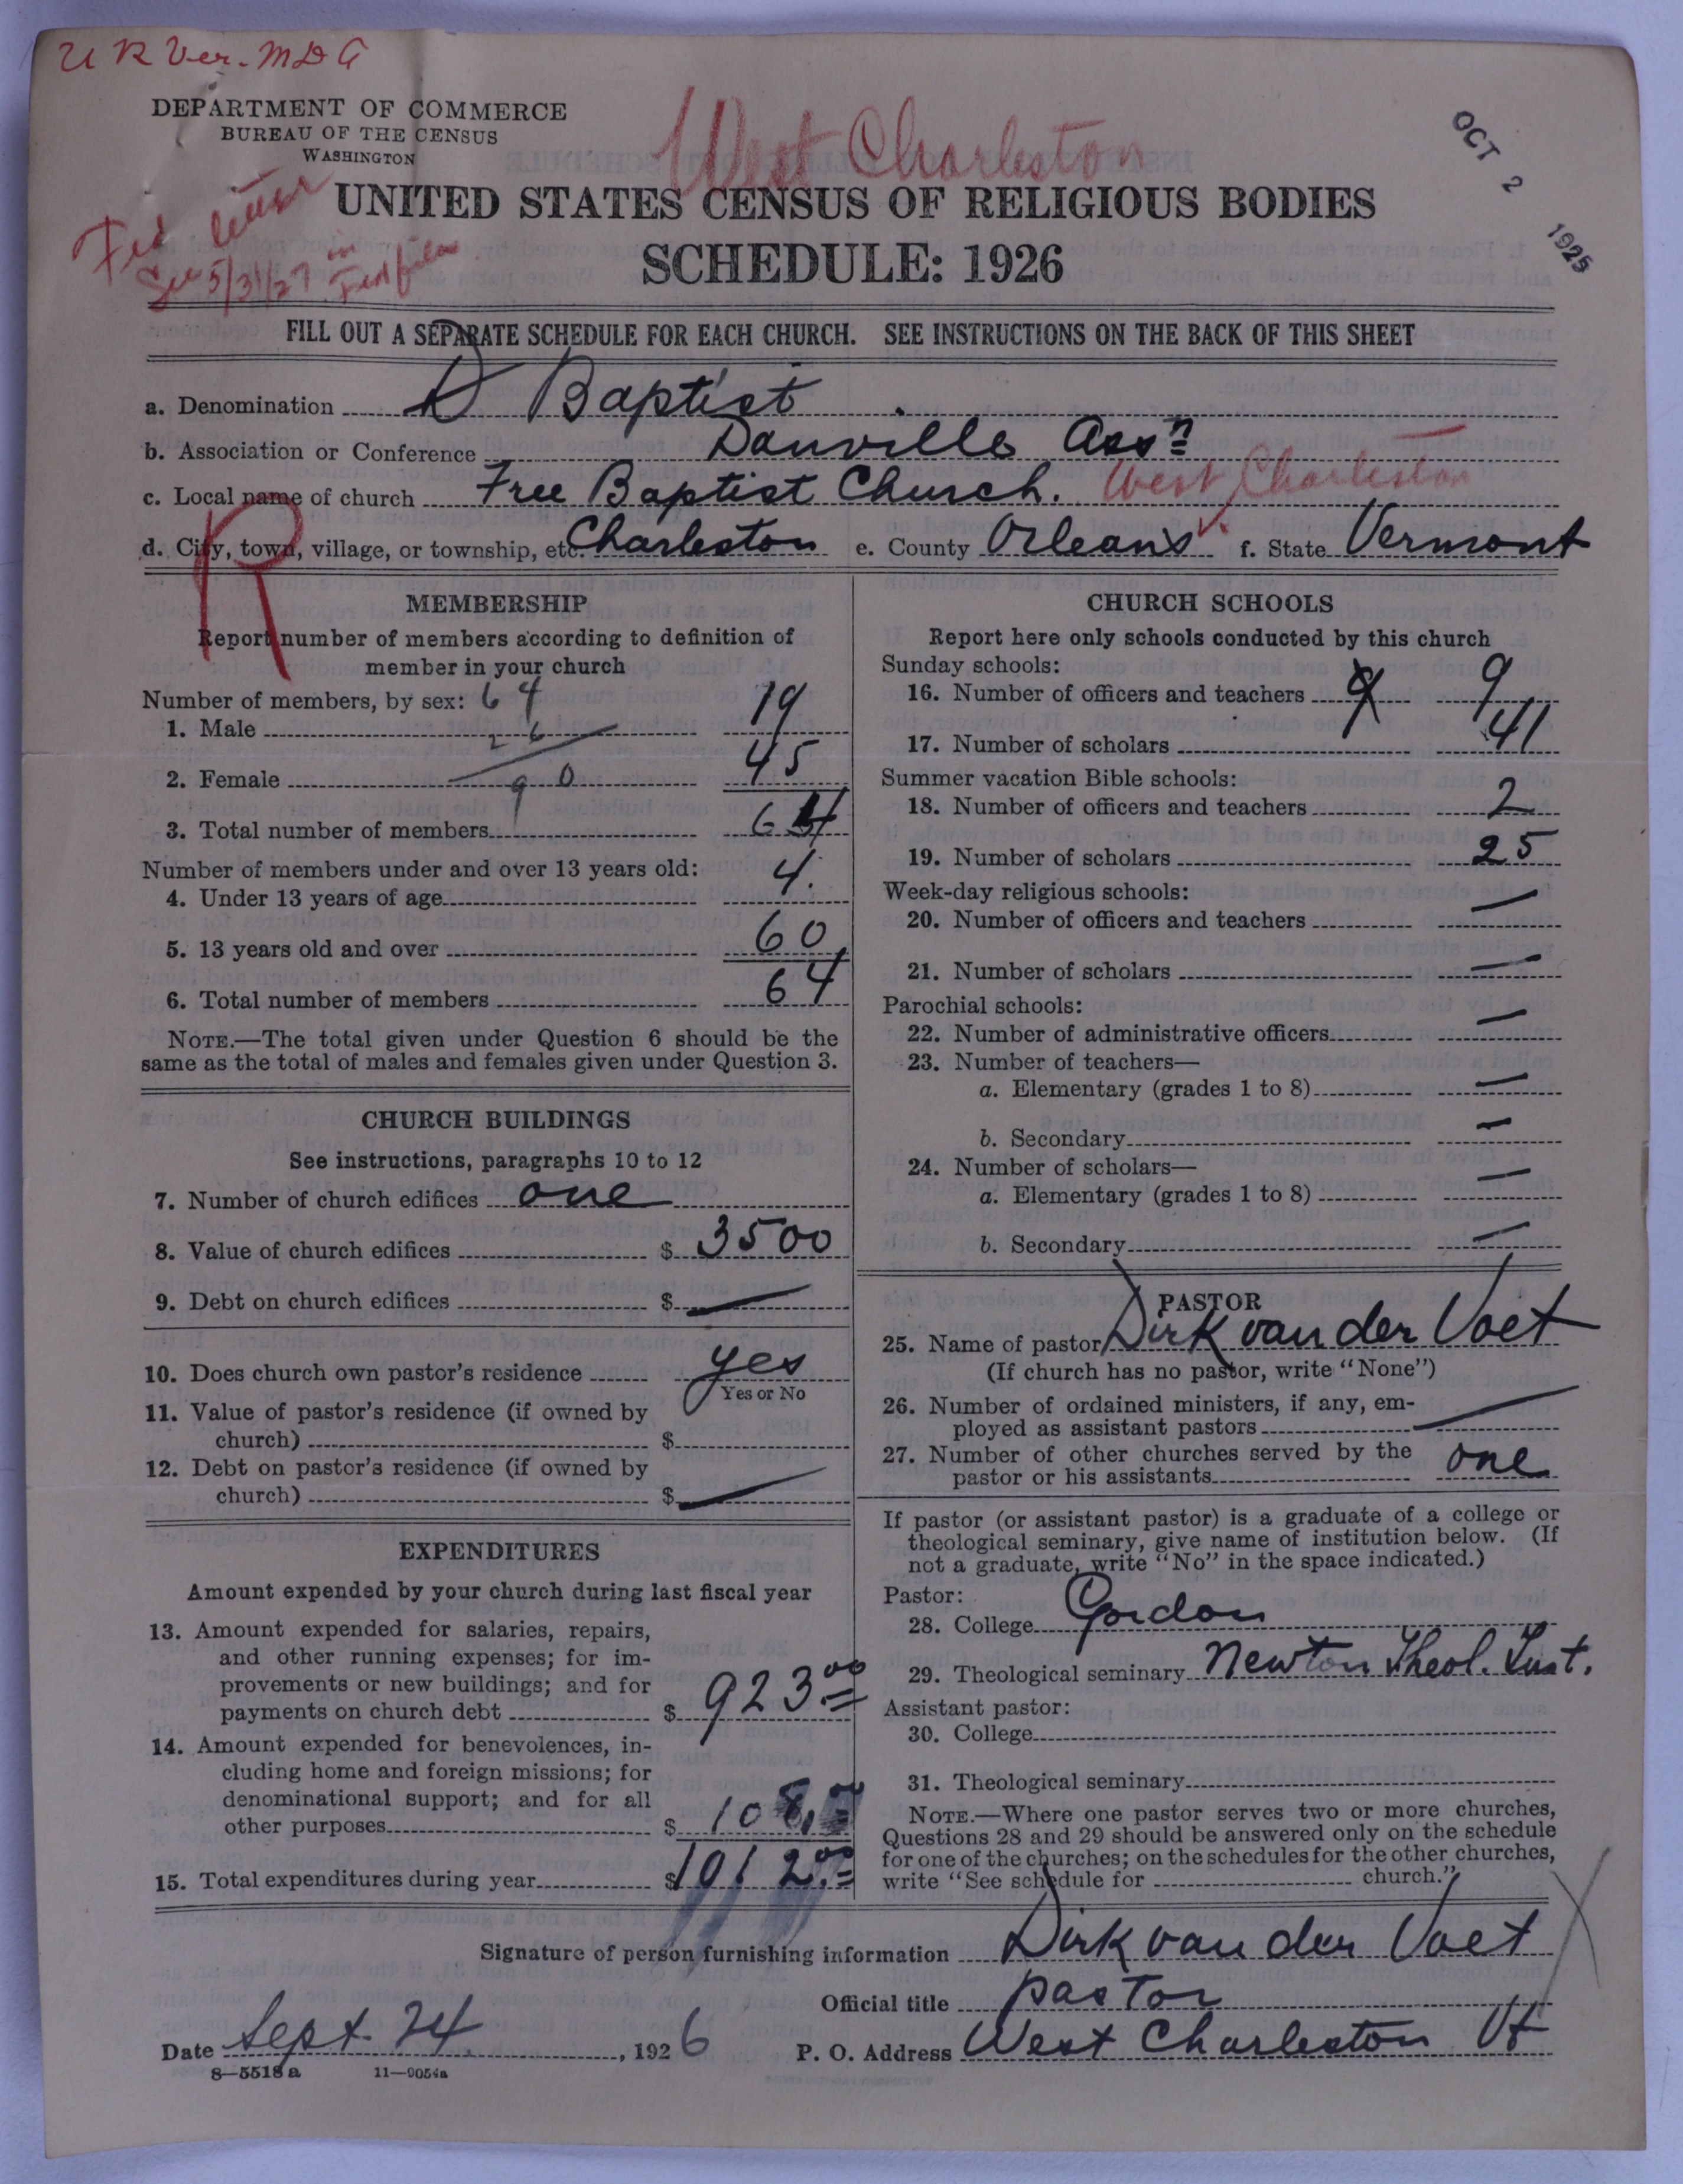 U R Ver. M D A
DEPARTMENT OF COMMERCE
BUREAU OF THE CENSUS
WASHINGTON
West Charleston
OCT 2 1925
Fed letter
See 5/31/27 in
Fed files
UNITED STATES CENSUS OF RELIGIOUS BODIES
SCHEDULE: 1926
FILL OUT A SEPARATE SCHEDULE FOR EACH CHURCH. SEE INSTRUCTIONS ON THE BACK OF THIS SHEET
a. Denomination Baptist
b. Association or Conference Danville Assn
c. Local name of church Free Baptist Church. West Charleston
d. City, town, village, or township, etc. Charleston e. County Orleans f. State Vermont
R
MEMBERSHIP
Report number of members according to definition of
member in your church
Number of members, by sex: 64
1. Male 26 19
2. Female 45
90
3. Total number of members 64
Number of members under and over 13 years old:
4. Under 13 years of age 4.
5. 13 years old and over 60
6. Total number of members 64
NOTE.—The total given under Question 6 should be the
same as the total of males and females given under Question 3.
CHURCH BUILDINGS
See instructions, paragraphs 10 to 12
7. Number of church edifices one
8. Value of church edifices $ 3500
9. Debt on church edifices $ —
10. Does church own pastor's residence yes
Yes or No
11. Value of pastor's residence (if owned by
church) $
12. Debt on pastor's residence (if owned by
church) $ —
EXPENDITURES
Amount expended by your church during last fiscal year
13. Amount expended for salaries, repairs,
and other running expenses; for im-
provements or new buildings; and for
payments on church debt $ 923.00
14. Amount expended for benevolences, in-
cluding home and foreign missions; for
denominational support; and for all
other purposes $ 108.
15. Total expenditures during year $ 1012.00
CHURCH SCHOOLS
Report here only schools conducted by this church
Sunday schools:
16. Number of officers and teachers 9 9
17. Number of scholars 41
Summer vacation Bible schools:
18. Number of officers and teachers 2
19. Number of scholars 25
Week-day religious schools:
20. Number of officers and teachers —
21. Number of scholars —
Parochial schools:
22. Number of administrative officers —
23. Number of teachers—
a. Elementary (grades 1 to 8) —
b. Secondary —
24. Number of scholars—
a. Elementary (grades 1 to 8) —
b. Secondary —
PASTOR
25. Name of pastor Dirk van der Voet
(If church has no pastor, write "None")
26. Number of ordained ministers, if any, em-
ployed as assistant pastors —
27. Number of other churches served by the
pastor or his assistants one
If pastor (or assistant pastor) is a graduate of a college or
theological seminary, give name of institution below. (If
not a graduate, write "No" in the space indicated.)
Pastor:
28. College Gordon
29. Theological seminary Newton Theol. Inst.
Assistant pastor:
30. College
31. Theological seminary
NOTE.—Where one pastor serves two or more churches,
Questions 28 and 29 should be answered only on the schedule
for one of the churches; on the schedules for the other churches,
write "See schedule for church."
Signature of person furnishing information Dirk van der Voet
Official title pastor
Date Sept. 24. , 1926 P. O. Address West Charleston Vt
8—5518a 11—9054a